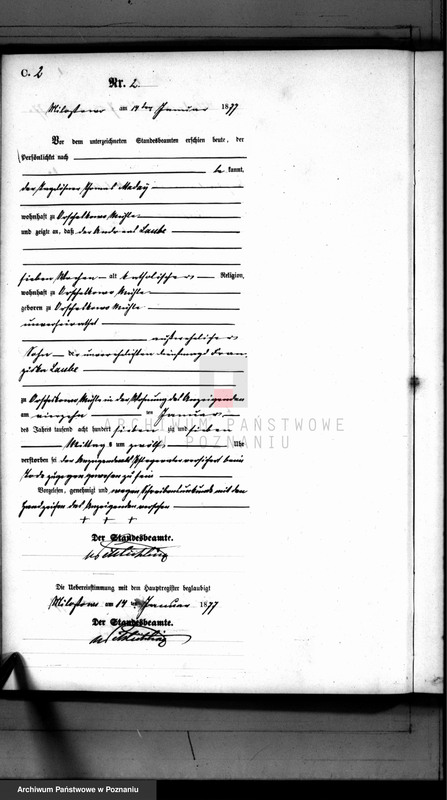 C. 2
Nr. 2
Miloslaw am 14 ten Januar 1877
Vor dem unterzeichneten Standesbeamten erschien heute, der
Persönlichkeit nach
be kannt,
der Tagelöhner Thomas
wohnhaft zu Mühle
und zeigte an, daß der Andreas Laube
sieben Wochen alt katholischer Religion,
wohnhaft zu Mühle
geboren zu Mühle
unverheirathet
außerehelicher
Sohn der unverehelichten Dienstmagd Fran
ziska Laube
zu Mühle in der Wohnung des Anzeigenden
am ten Januar
des Jahrs tausend acht hundert sieben zig und sieben
Mittags um zwölf Uhr
verstorben sei
Tode zugegen gewesen zu sein
Vorgelesen, genehmigt und wegen Schreibensunkunde mit den
Handzeichen des Anzeigenden versehen
+ + +
Der Standesbeamte.
Die Uebereinstimmung mit dem Hauptregister beglaubigt
Miloslaw am 14 ten Januar 1877
Der Standesbeamte.
ARCHIWUM PAŃSTWOWE
W POZNANIU
Archiwum Państwowe w Poznaniu